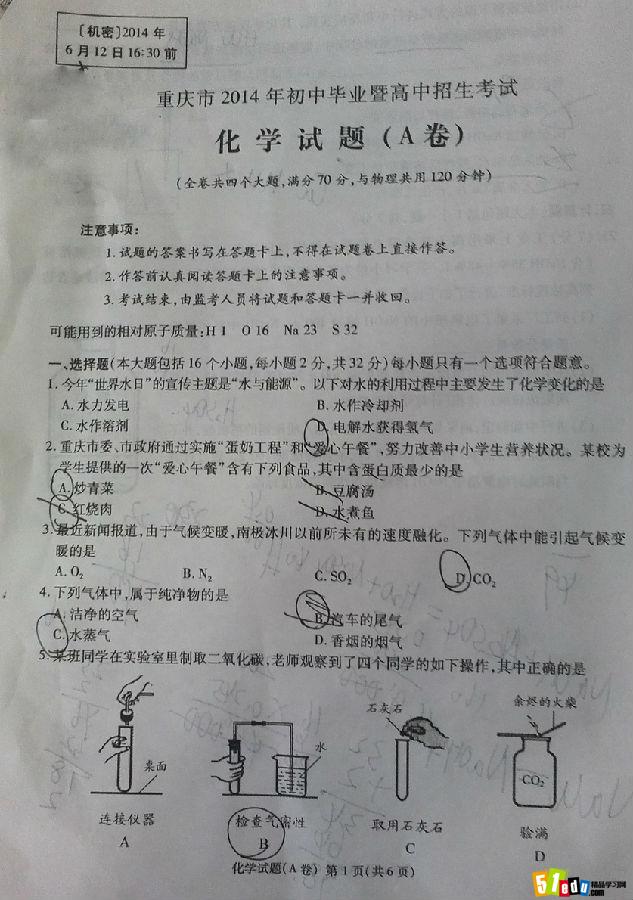 〔机密〕2014 年
6 月 12 日 16:30 前
重庆市 2014 年初中毕业暨高中招生考试
化 学 试 题 (A 卷)
(全卷共四个大题,满分 70 分,与物理共用 120 分钟)
注意事项:
1. 试题的答案书写在答题卡上,不得在试题卷上直接作答。
2. 作答前认真阅读答题卡上的注意事项。
3. 考试结束,由监考人员将试题和答题卡一并收回。
可能用到的相对原子质量:H 1 O 16 Na 23 S 32
一、选择题(本大题包括 16 个小题,每小题 2 分,共 32 分)每小题只有一个选项符合题意。
1. 今年“世界水日”的宣传主题是“水与能源”。以下对水的利用过程中主要发生了化学变化的是
A. 水力发电 B. 水作冷却剂
C. 水作溶剂 D. 电解水获得氢气
2. 重庆市委、市政府通过实施“蛋奶工程”和“爱心午餐”,努力改善中小学生营养状况。某校为
学生提供的一次“爱心午餐”含有下列食品,其中含蛋白质最少的是
A. 炒青菜 B. 豆腐汤
C. 红烧肉 D. 水煮鱼
3. 最近新闻报道,由于气候变暖,南极冰川以前所未有的速度融化。下列气体中能引起气候变
暖的是
A. O₂ B. N₂ C. SO₂ D. CO₂
4. 下列气体中,属于纯净物的是
A. 洁净的空气 B. 汽车的尾气
C. 水蒸气 D. 香烟的烟气
5. 某班同学在实验室里制取二氧化碳,老师观察到了四个同学的如下操作,其中正确的是
石灰石 余烬的火柴
桌面 水 CO₂
连接仪器 检查气密性 取用石灰石 验满
A B C D
化学试题(A 卷) 第 1 页(共 6 页)
51edu 精品学习网
.com